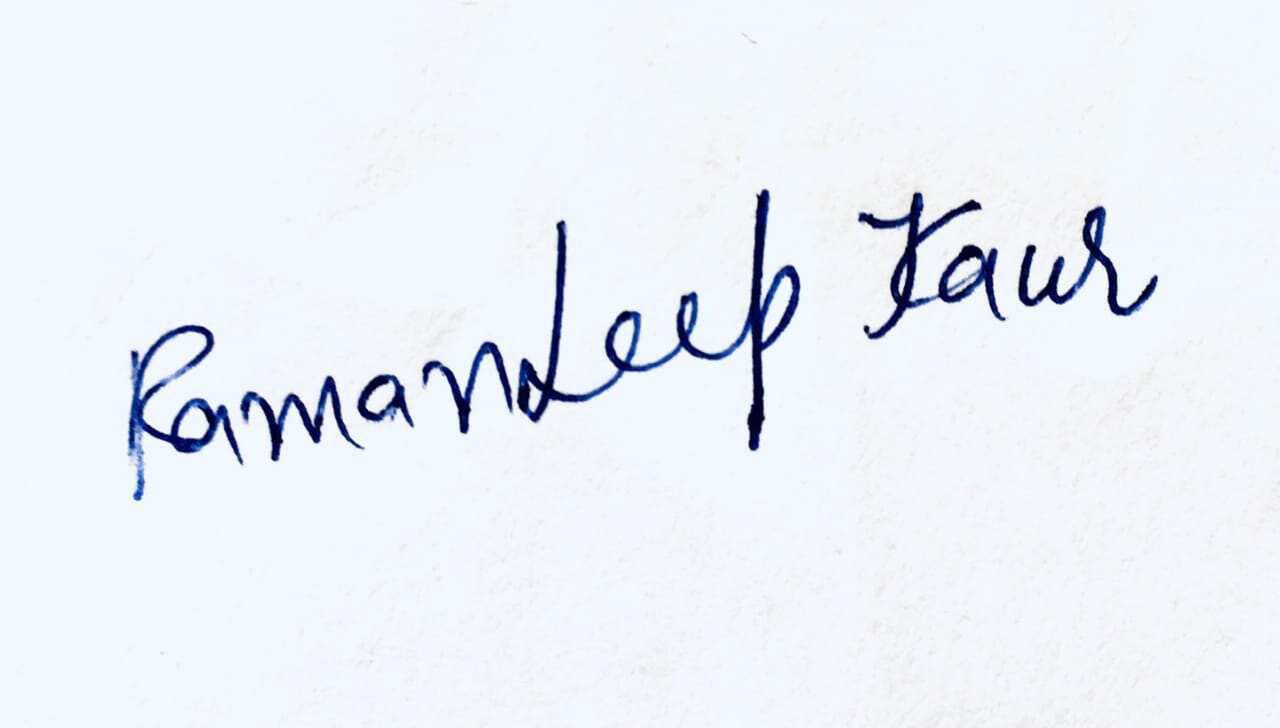 Ramandeep Kaur